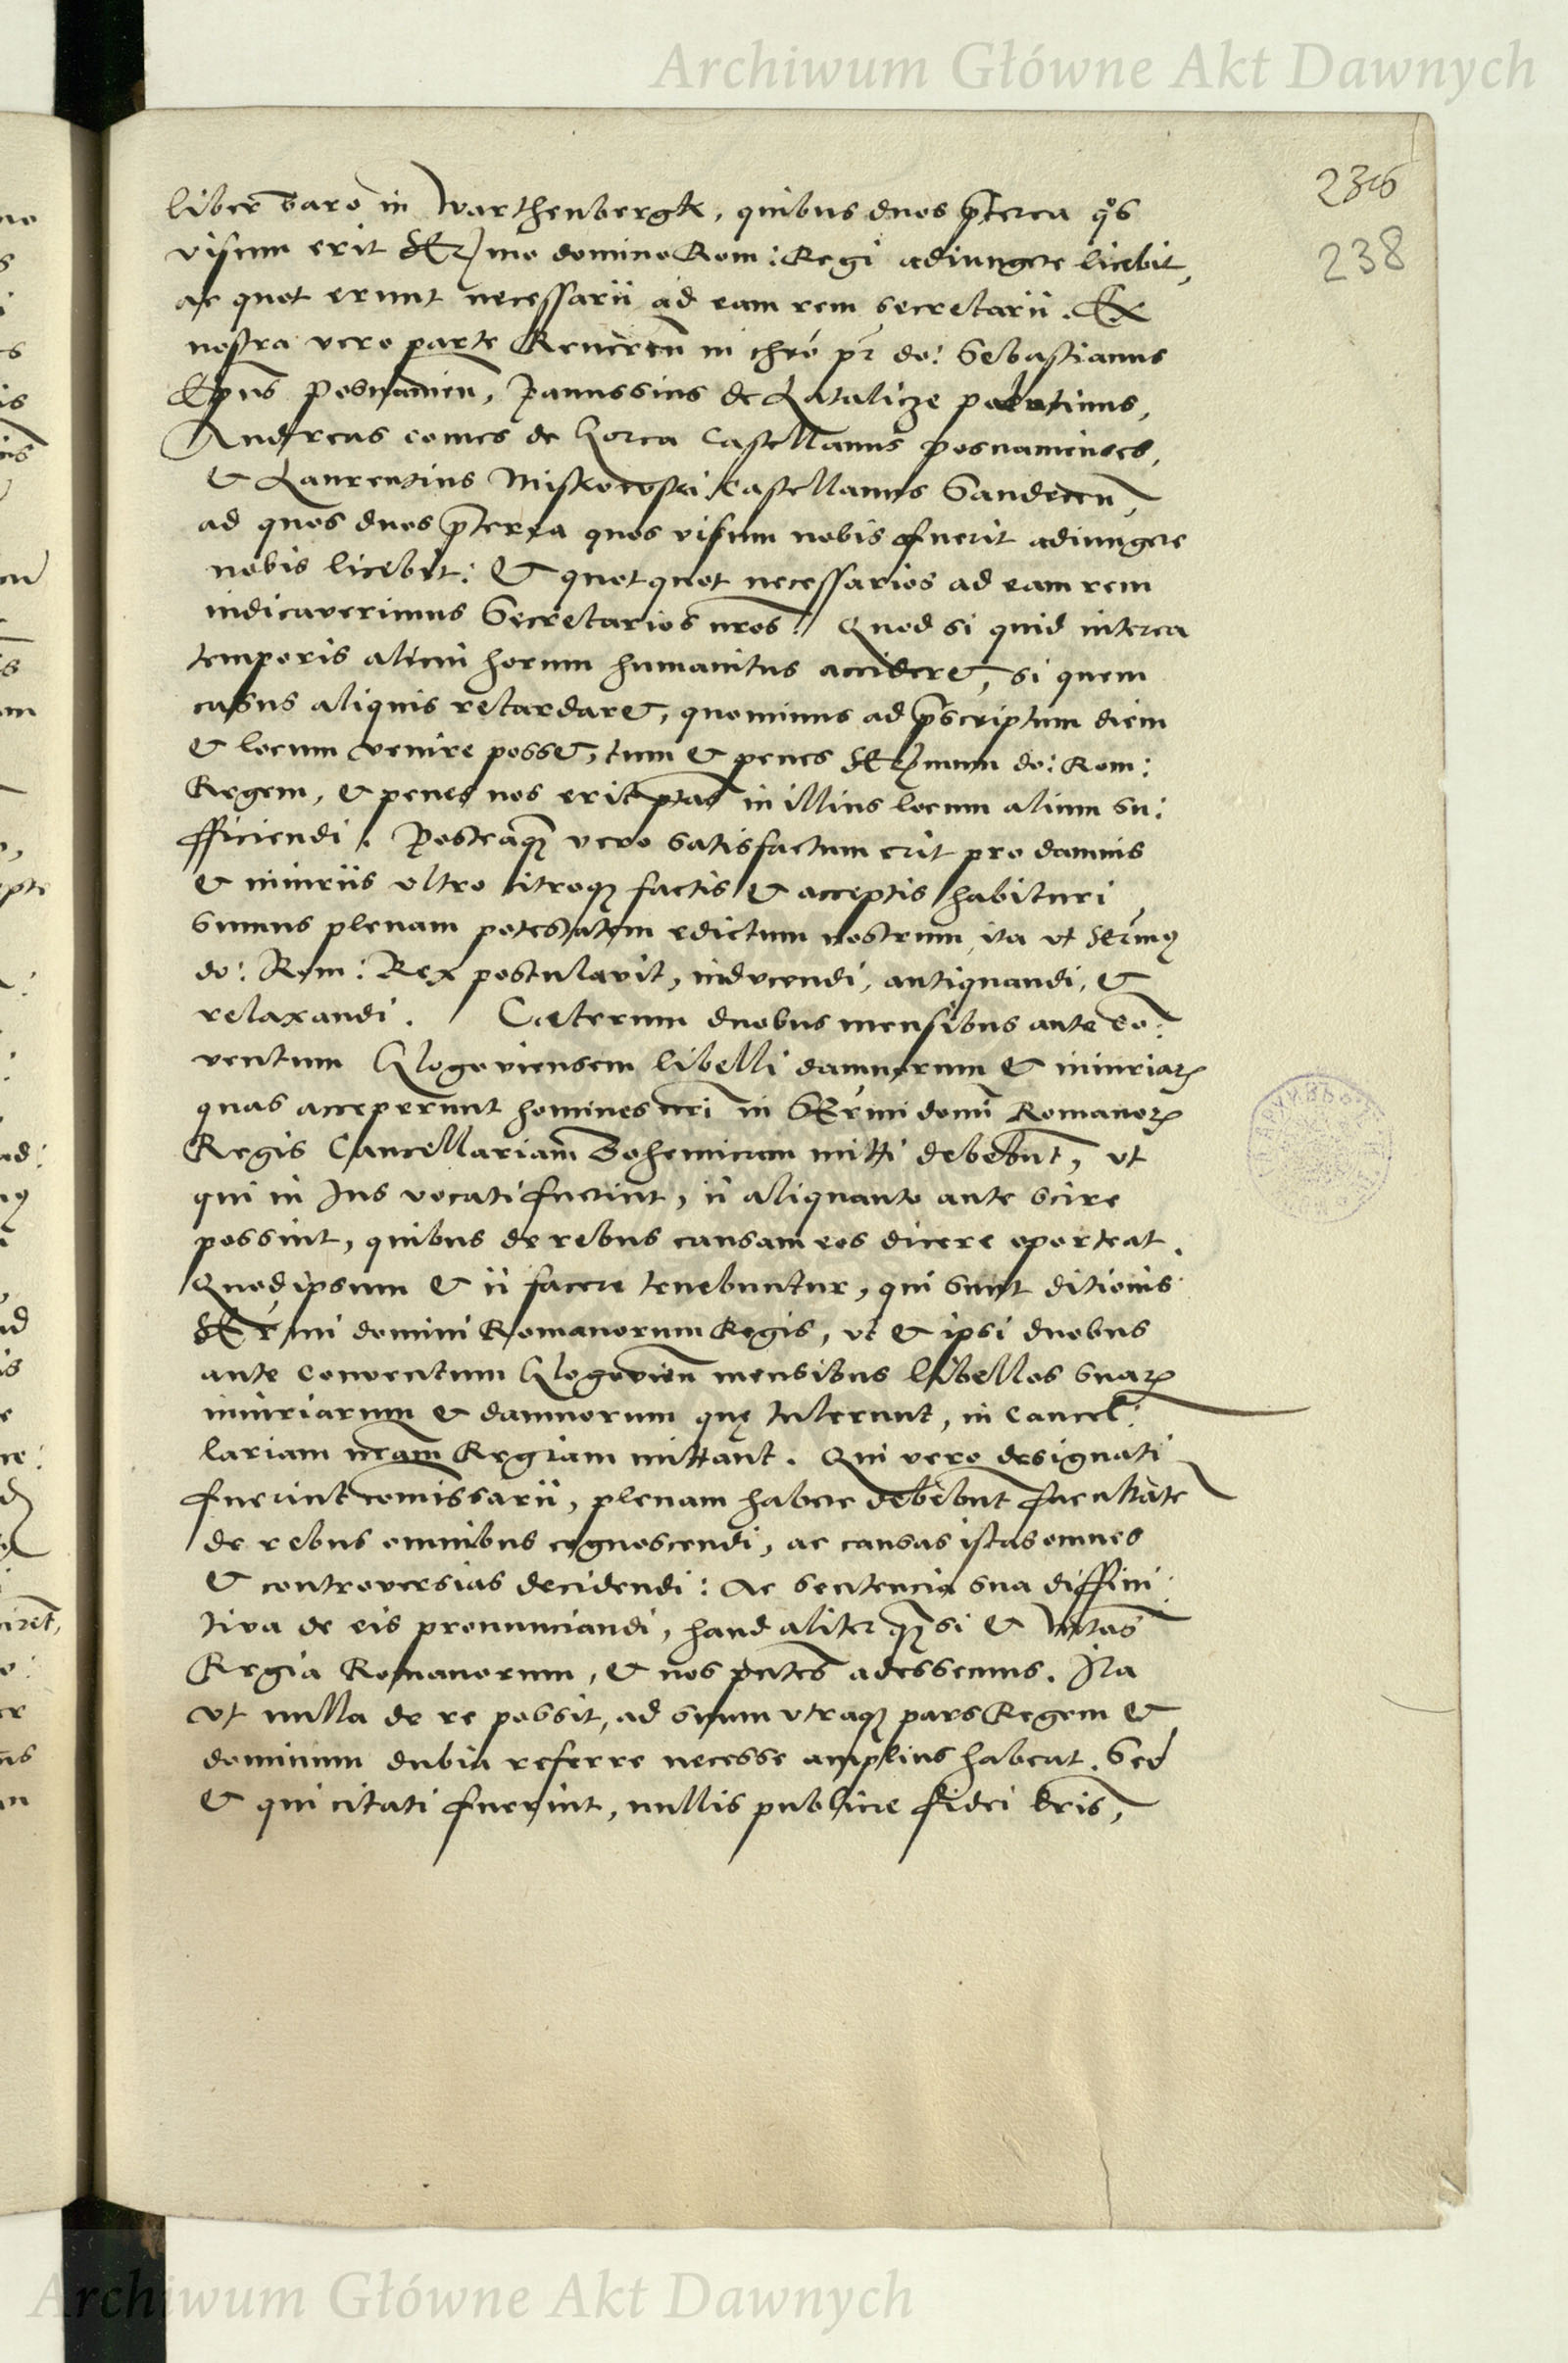 Archiwum Główne Akt Dawnych
236
238
liber baro in Warthenbergk, quibus duos p̃terea q̊s
visum erit Ser̃mo domino Rom: Regi adiungere licebit,
ac quot erunt necessarii ad eam rem secretarii. Ex
nostra vero parte Reveren̄ in chr̃o pr̃ do: Sebastianus
Ep̃us Posnanien̄, Janussius de Latalicze palatinus,
Andreas comes de Gorca Castellanus posnanienses,
et Laurentius Miskowski Castellanus Sandecen̄,
ad quos duos p̃terea quos visum nobis fuerit adiungere
nobis licebit: Et quotquot necessarios ad eam rem
iudicaverimus Secretarios nr̃os. Quod si quid interea
temporis alicui horum humanitus accideret, si quem
casus aliquis retardaret, quominus ad p̃scriptum diem
et locum venire posset, tum et penes Ser̃mum do: Rom:
Regem, et penes nos erit p̃tas in illius locum alium su:
fficiendi. Posteaqꝫ vero satisfactum erit pro damnis
et iniuriis ultro citroqꝫ factis et acceptis habituri
sumus plenam potestatem edictum nostrum, ita ut Ser̃mꝰ
do: Rom: Rex postulavit, inducendi, antiquandi, et
relaxandi. Cæterum duobus mensibus ante co:
ventum Glogoviensem libelli damnorum et iniuriaꝝ
quas acceperunt homines nr̃i in Ser̃mi domī Romanoꝝ
Regis Cancellariam Bohemicam mitti debebūt, ut
qui in Ius vocati fuerint, ii aliquanto ante scire
possint, quibus de rebus causam eos dicere oporteat.
Quod ipsum et ii facere tenebuntur, qui sunt ditionis
Ser̃mi domini Romanorum Regis, ut et ipsi duobus
ante conventum Glogovien̄ mensibus libellos suaꝝ
iniuriarum et damnorum quę tulerunt, in Cancel:
lariam nr̃am Regiam mittant. Qui vero designati
fuerint comissarii, plenam habere debebunt facultatē
de rebus omnibus cognoscendi, ac causas istas omnes
et controversias decidendi: Ac sentencia sua diffini:
tiva de eis pronunciandi, haud aliter qꝫ si et M̃tas
Regia Romanorum, et nos p̃ntes adessemus. Ita
ut nulla de re possit, ad suum utraqꝫ pars Regem et
dominum dubia referre necesse amplius habeat. Sed
et qui citati fuerint, nullis publice fidei lr̃is,
Archiwum Główne Akt Dawnych